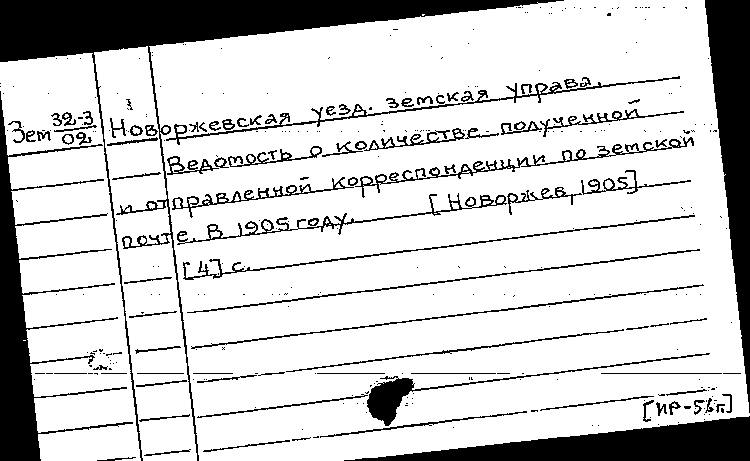 Зем 32-3/02.
Новоржевская уезд. земская управа.
Ведомость о количестве полученной
и отправленной корреспонденции по земской
почте. В 1905 году. [Новоржев, 1905].
[4] с.
[ИР-56п]